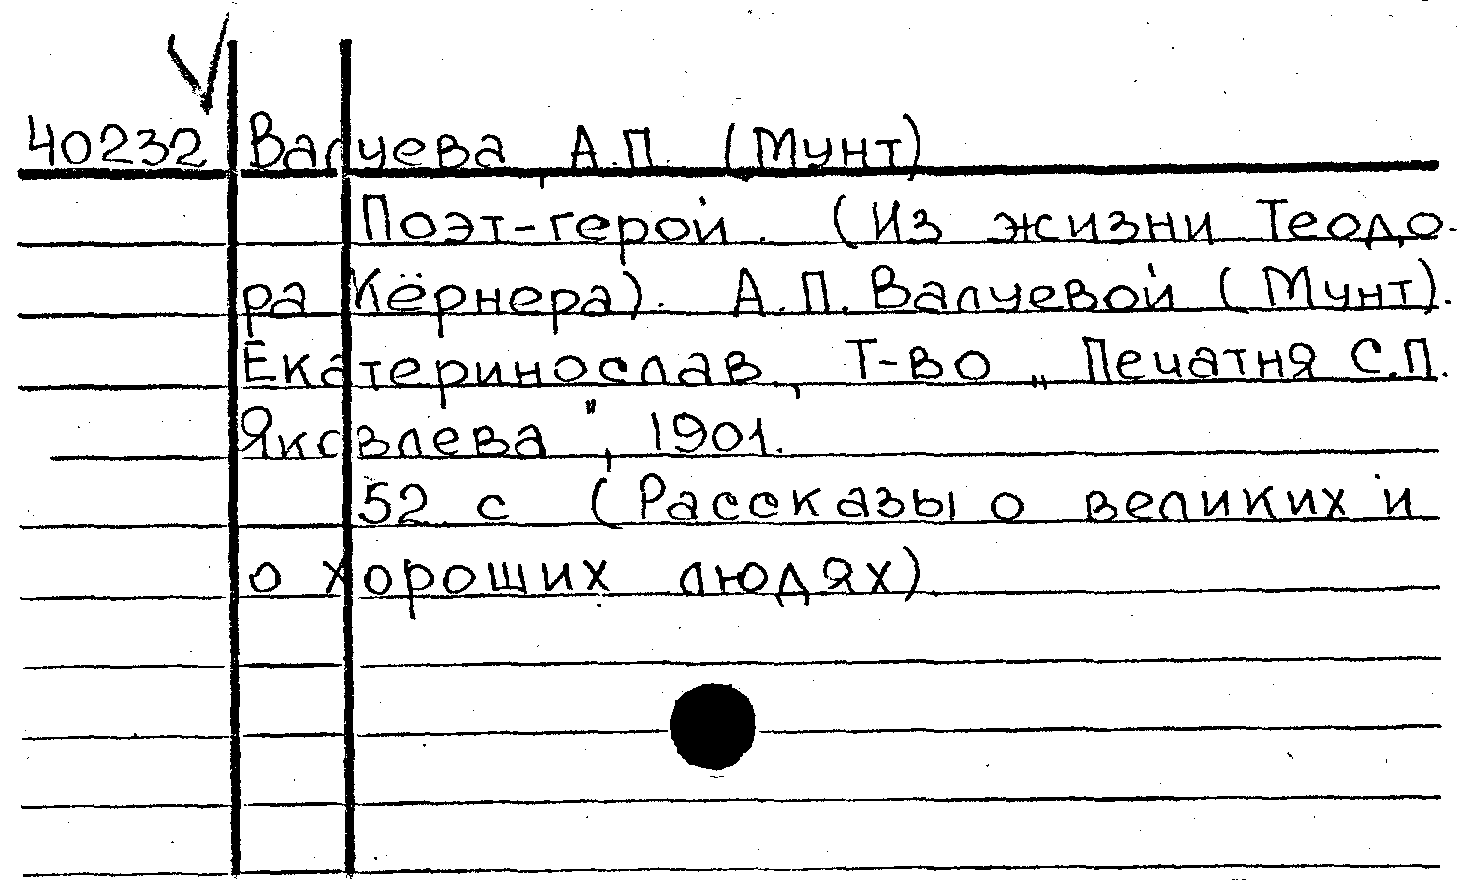 40232 Валуева, А.П. (Мунт)
Поэт-герой. (Из жизни Теодо-
ра Кёрнера). А.П. Валуевой (Мунт).
Екатеринослав, Т-во „Печатня С.П.
Яковлева", 1901.
52 с (Рассказы о великих и
о хороших людях)